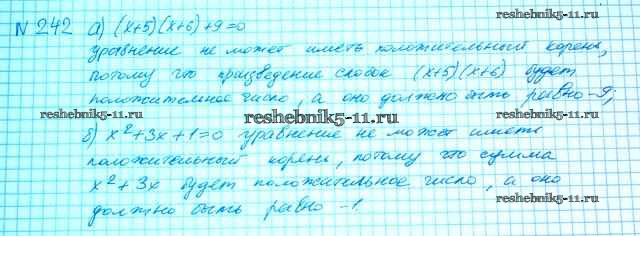 N 242 а) (x+5)(x+6)+9=0
reshebnik5-11.ru
уравнение не может иметь положительный корень,
потому что произведение скобок (x+5)(x+6) будет
положительное число, а оно должно быть равно -9;
reshebnik5-11.ru reshebnik5-11.ru reshebnik5-11.ru
б) x²+3x+1=0 уравнение не может иметь
положительный корень, потому что сумма
x²+3x будет положительное число, а оно
reshebnik5-11.ru
должно быть равно -1